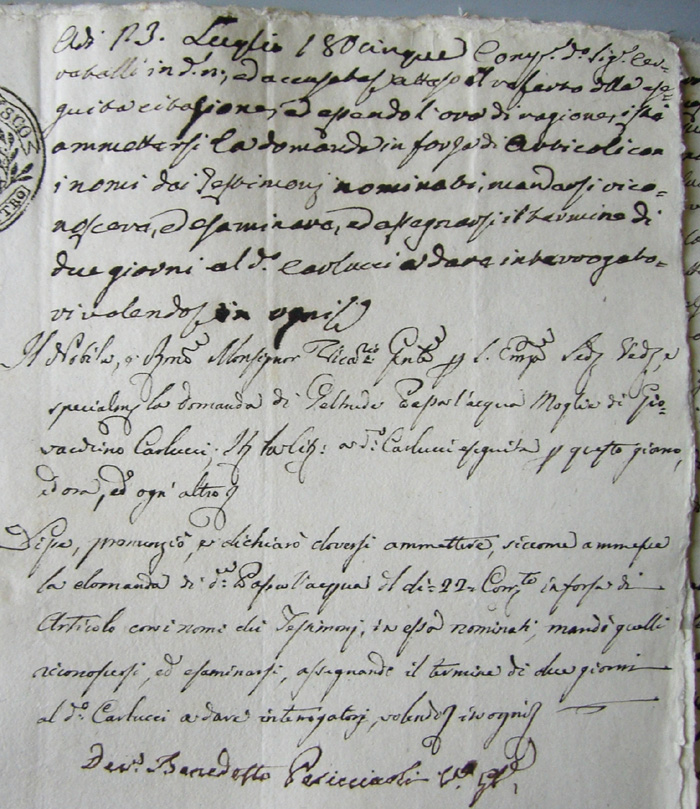 Adi 123. Luglio 180cinque Comp. do. Sig. Cer-
vatelli in d. n:, ed accusata, atteso il referto della ese-
guita citazione, ed essendo l'ora di ragione, ista
ammettersi la domanda in forza di Articoli con
i nomi dei Testimonj nominati, mandarsi rico-
noscere, ed esaminare, ed assegnarsi il termine di
due giorni al do. Carlucci a dare interrogato-
ri volendo, in ogni
Il Nobile, e Rmo Monsignor Vicario Gente p l. Empa Sedj Vedj, e
specialm la domanda di Geltrude Passa l'acqua Moglie di Gio-
vacchino Carlucci, a do. Carlucci eseguita p questo giorno,
ed ora, ed ogn'altro
Disse, pronunziò, e dichiarò doversi ammettere, siccome ammesse
la domanda di da. Passa l'acqua il di=22= Corrte in forza di
Articolo con i nomi dei Testimonj, in essa nominati, mandò quelli
riconoscersi, ed esaminarsi, assegnando il termine di due giorni
al do. Carlucci a dare interrogatorj, volendo, in ogni
Benedetto Pericciuoli
SCO
TRO